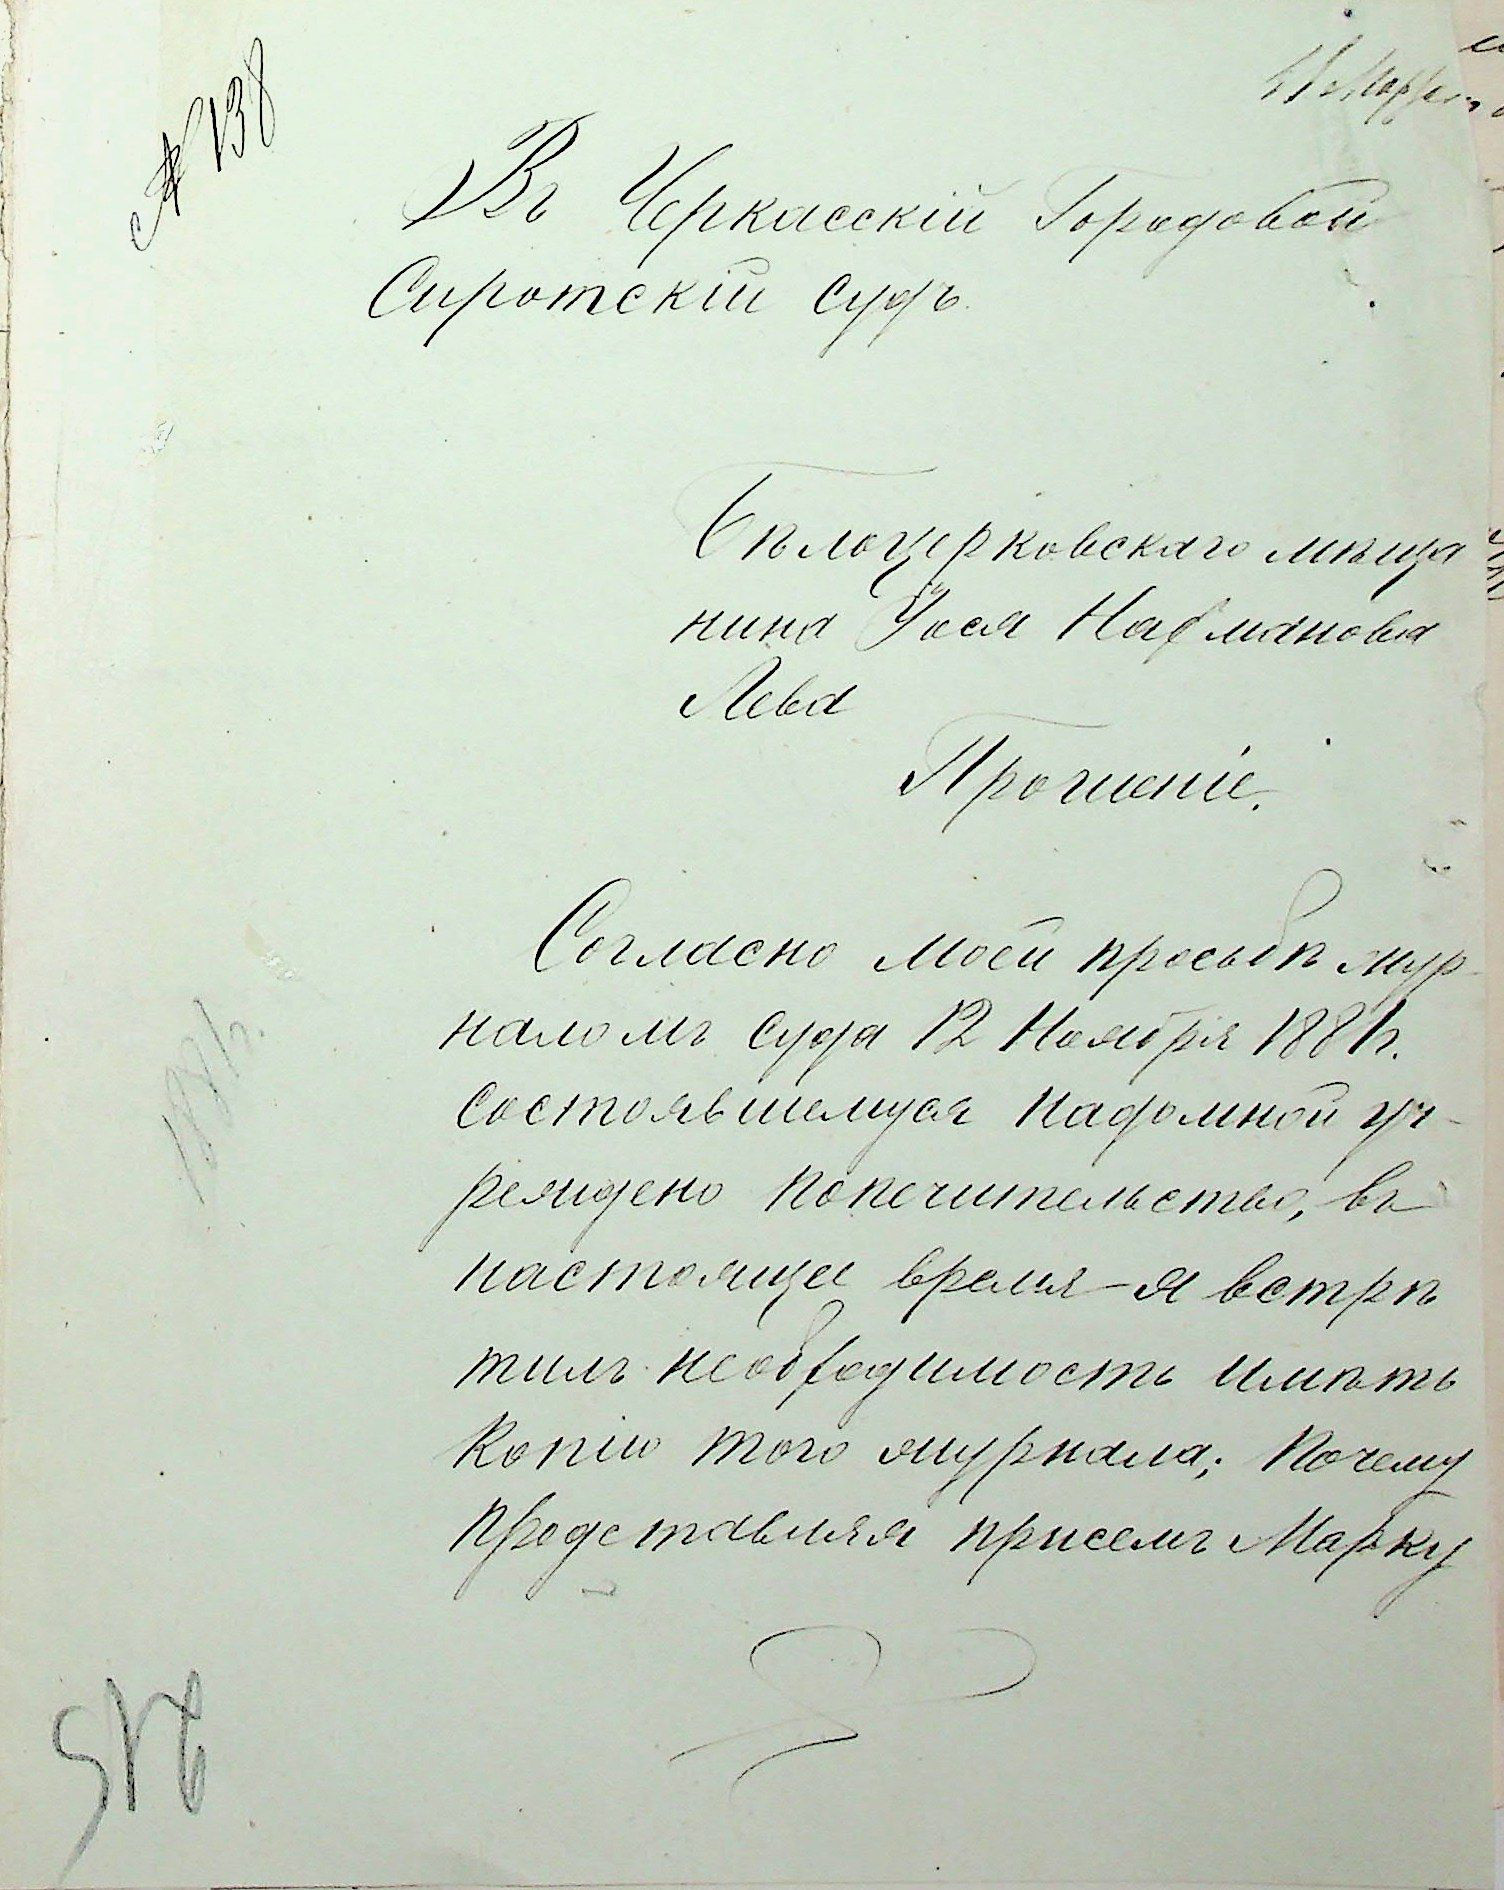 № 138
Въ Черкасскій Городовой
Сиротскій судъ.
Бѣлоцерковскаго мѣща
нина Іося Нафманова
Лева
Прошеніе.
Согласно моей просьбѣ жур-
наломъ суда 12 Ноября 1881 г.
состоявшемуся надомной уч-
реждено попечительство, въ
настояще время я встрѣ
тилъ необходимость имѣть
копію того журнала; почему
представляя присемъ Марку
1881 г.